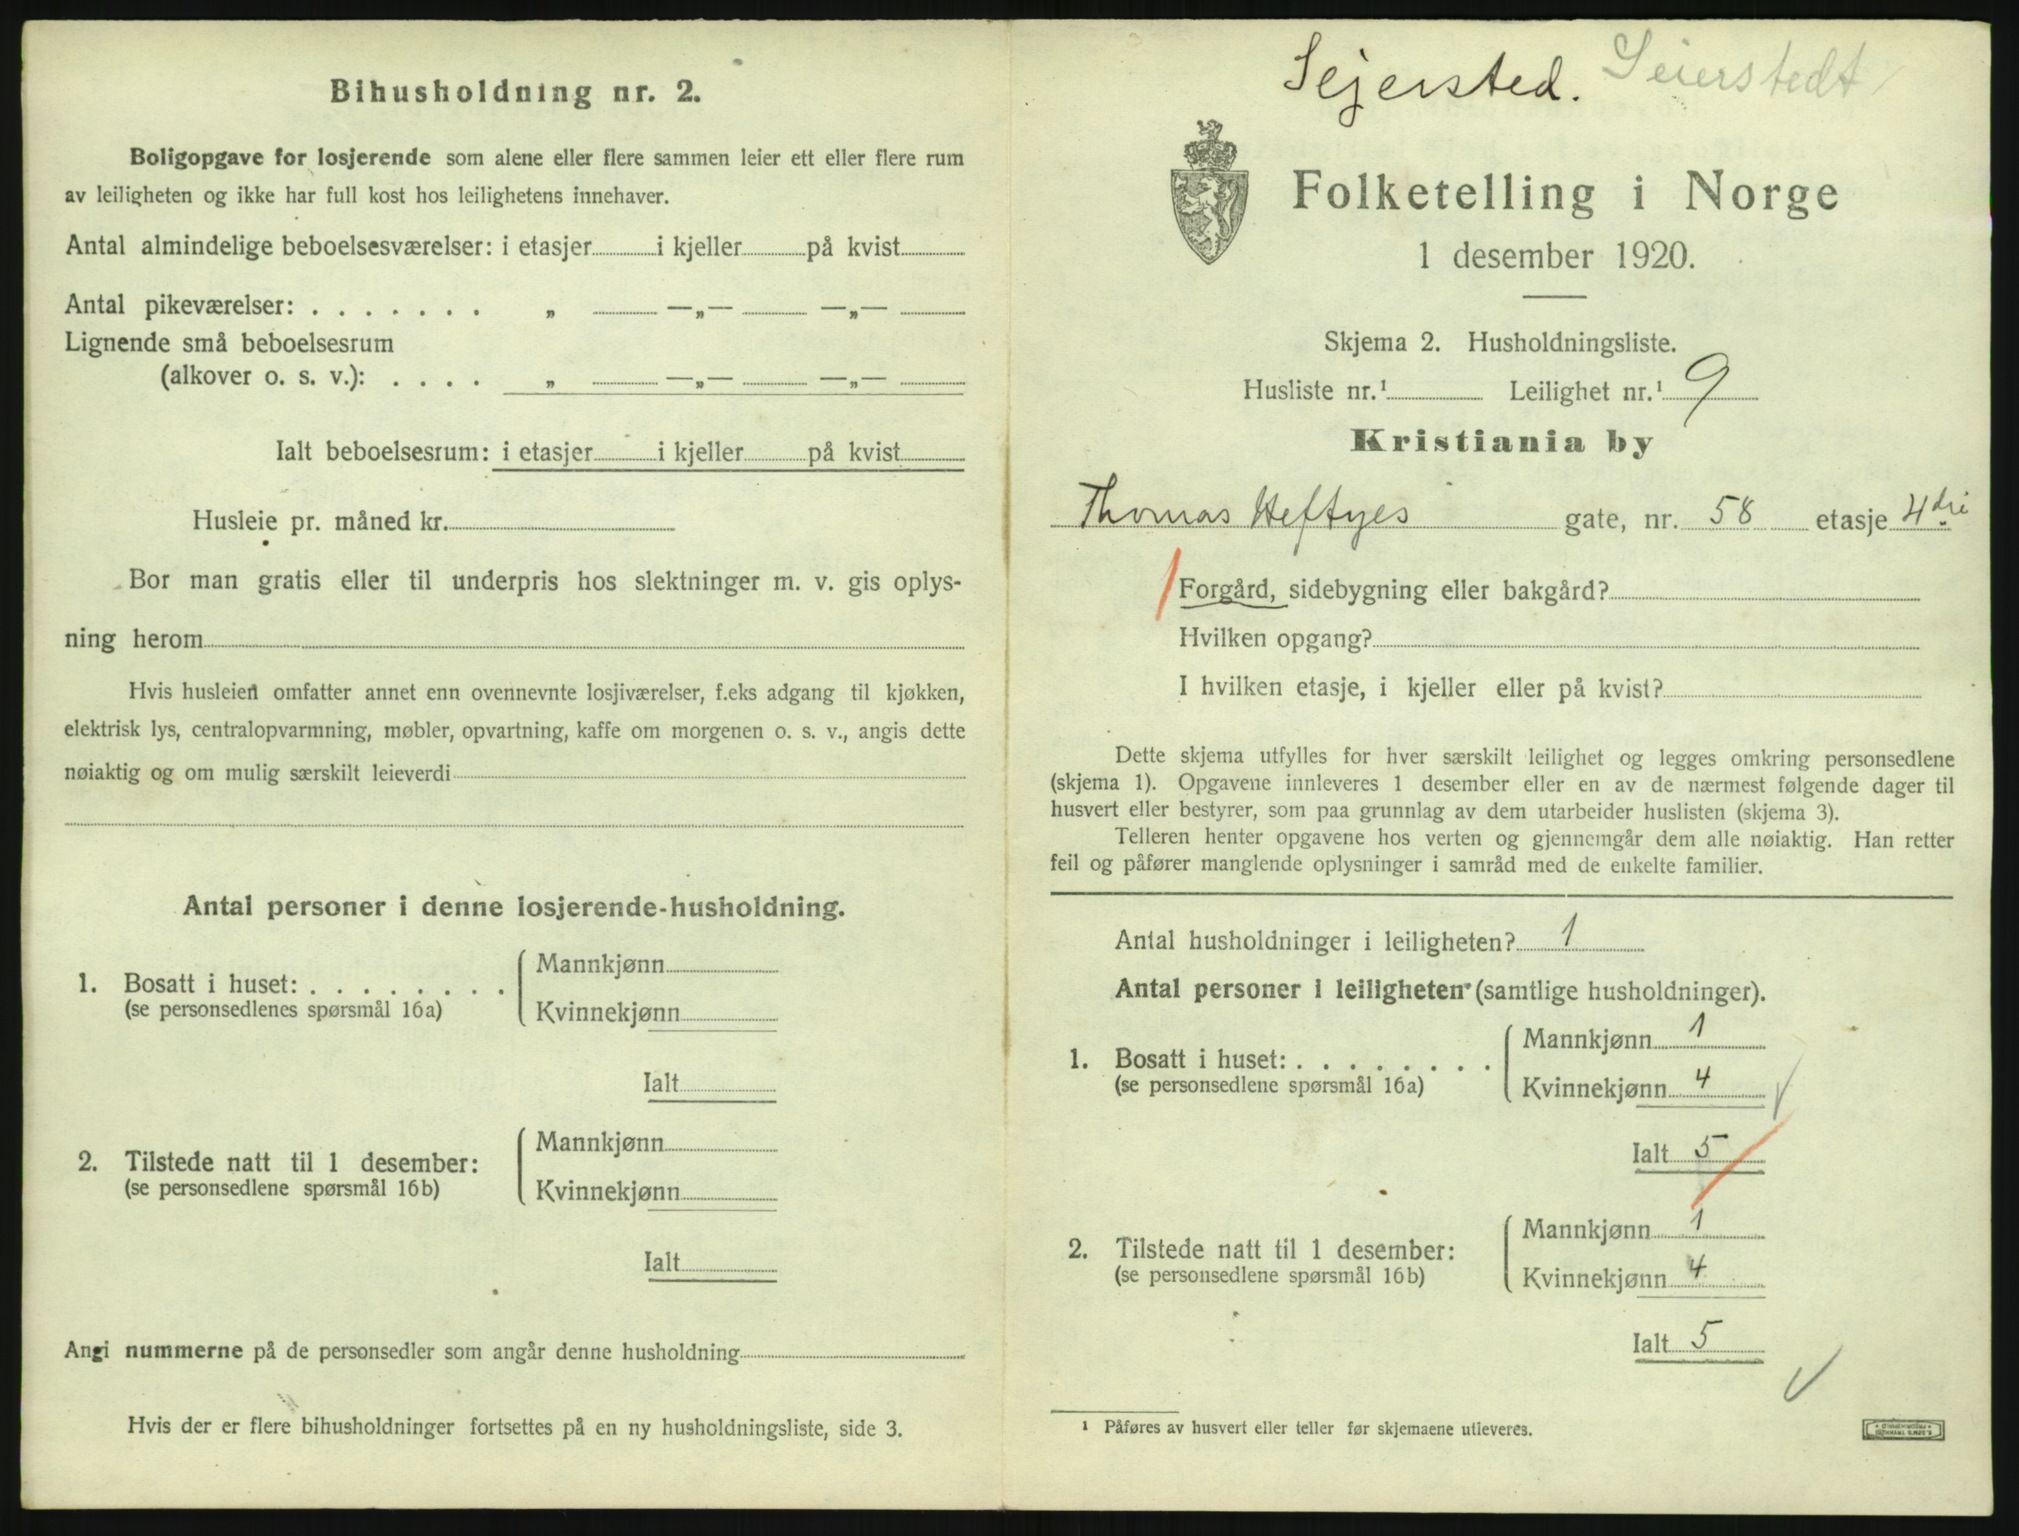 Bihusholdning nr. 2.
Boligopgave for losjerende som alene eller flere sammen leier ett eller flere rum
av leiligheten og ikke har full kost hos leilighetens innehaver.
Antal almindelige beboelsesværelser: i etasjer i kjeller på kvist
Antal pikeværelser: . . . . . . . „ —„— —„—
Lignende små beboelsesrum
(alkover o. s. v.): . . . . „ —„— —„—
Ialt beboelsesrum: i etasjer i kjeller på kvist
Husleie pr. måned kr.
Bor man gratis eller til underpris hos slektninger m. v. gis oplys-
ning herom
Hvis husleien omfatter annet enn ovennevnte losjiværelser, f.eks adgang til kjøkken,
elektrisk lys, centralopvarmning, møbler, opvartning, kaffe om morgenen o. s. v., angis dette
nøiaktig og om mulig særskilt leieverdi
Antal personer i denne losjerende-husholdning.
1. Bosatt i huset: . . . . . . . . Mannkjønn
(se personsedlenes spørsmål 16a) Kvinnekjønn
Ialt
2. Tilstede natt til 1 desember: Mannkjønn
(se personsedlene spørsmål 16b) Kvinnekjønn
Ialt
Angi nummerne på de personsedler som angår denne husholdning
Hvis der er flere bihusholdninger fortsettes på en ny husholdningsliste, side 3.
Sejersted. Seierstedt
Folketelling i Norge
1 desember 1920.
Skjema 2. Husholdningsliste.
Husliste nr.¹ Leilighet nr.¹ 9
Kristiania by
Thomas Heftyes gate, nr. 58 etasje 4de
Forgård, sidebygning eller bakgård?
Hvilken opgang?
I hvilken etasje, i kjeller eller på kvist?
Dette skjema utfylles for hver særskilt leilighet og legges omkring personsedlene
(skjema 1). Opgavene innleveres 1 desember eller en av de nærmest følgende dager til
husvert eller bestyrer, som paa grunnlag av dem utarbeider huslisten (skjema 3).
Telleren henter opgavene hos verten og gjennemgår dem alle nøiaktig. Han retter
feil og påfører manglende oplysninger i samråd med de enkelte familier.
Antal husholdninger i leiligheten? 1
Antal personer i leiligheten (samtlige husholdninger).
1. Bosatt i huset: . . . . . . . . Mannkjønn 1
(se personsedlene spørsmål 16a) Kvinnekjønn 4
Ialt 5
2. Tilstede natt til 1 desember: Mannkjønn 1
(se personsedlene spørsmål 16b) Kvinnekjønn 4
Ialt 5
¹ Påføres av husvert eller teller før skjemaene utleveres.